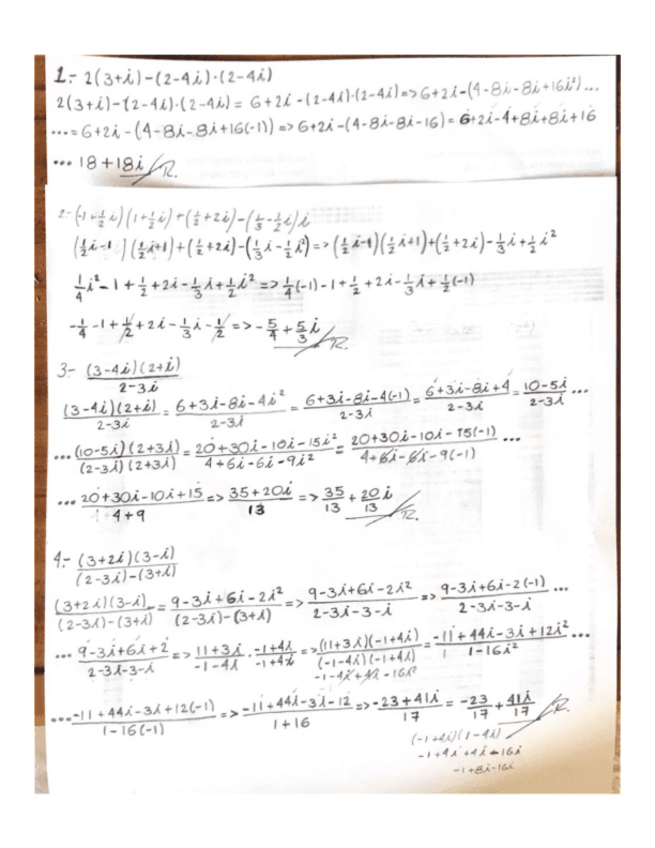 1.- 2(3+i)-(2-4i)·(2-4i)
2(3+i)-(2-4i)·(2-4i)= 6+2i-(2-4i)·(2-4i)=>6+2i-(4-8i-8i+16i²)...
...=6+2i-(4-8i-8i+16(-1)) => 6+2i-(4-8i-8i-16)= 6+2i-4+8i+8i+16
... 18+18i//R.
2.- (-1+½i)(1+½i)+(½+2i)-(⅓-½i)i
(½i-1)(½i+1)+(½+2i)-(⅓i-½i²)=>(½i-1)(½i+1)+(½+2i)-⅓i+½i²
¼i²-1+½+2i-⅓i+½i² => ¼(-1)-1+½+2i-⅓i+½(-1)
-¼-1+½+2i-⅓i-½ => -5/4+5/3i//R.
3.- (3-4i)(2+i)/2-3i
(3-4i)(2+i)/2-3i = 6+3i-8i-4i²/2-3i = 6+3i-8i-4(-1)/2-3i = 6+3i-8i+4/2-3i = 10-5i/2-3i ...
... (10-5i)(2+3i)/(2-3i)(2+3i) = 20+30i-10i-15i²/4+6i-6i-9i² = 20+30i-10i-15(-1)/4+6i-6i-9(-1) ...
... 20+30i-10i+15/4+9 => 35+20i/13 => 35/13+20/13i//R.
4.- (3+2i)(3-i)/(2-3i)-(3+i)
(3+2i)(3-i)/(2-3i)-(3+i) = 9-3i+6i-2i²/(2-3i)-(3+i) => 9-3i+6i-2i²/2-3i-3-i => 9-3i+6i-2(-1)/2-3i-3-i ...
... 9-3i+6i+2/2-3i-3-i => 11+3i/-1-4i · -1+4i/-1+4i => (11+3i)(-1+4i)/(-1-4i)(-1+4i) = -11+44i-3i+12i²/1-16i² ...
-1-4i+4i-16i²
...-11+44i-3i+12(-1)/1-16(-1) => -11+44i-3i-12/1+16 => -23+41i/17 = -23/17+41i/17//R.
(-1+4i)(1-4i)
-1+4i+4i-16i
-1+8i-16i